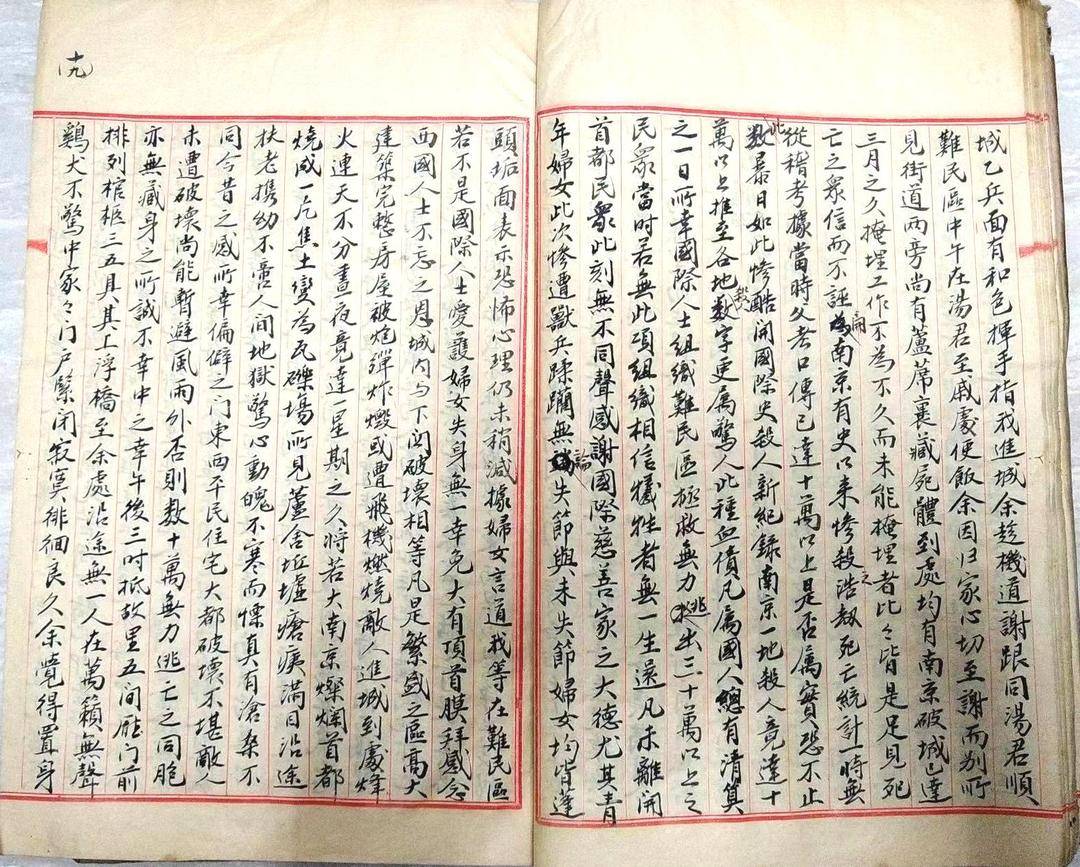 城乙兵面有和色揮手指我進城余趁機道謝跟同湯君順
難民區中午在湯君至戚處便飯余因归家心切至謝而别所
見街道兩旁尚有蘆蓆裹藏屍體到處均有南京破城已達
三月之久掩埋工作不為不久而未能掩埋者比々皆是足見死
亡之衆信而不誣偏南京有史以来惨殺浩劫死亡統計一時無
從稽考據當時父老口傳已達十萬以上是否屬實恐不止
此数暴日如此惨酷開國際史殺人新紀録南京一地殺人竟達十
萬以上推至各地数字更属驚人此種血債凡属國人總有清算
之一日所幸國際人士組織難民區極救無力逃出三十萬以上之
民衆當时若無此項組織相信犧牲者無一生還凡未離開
首都民衆此刻無不同聲感謝國際慈善家之大德尤其青
年婦女此次惨遭獸兵蹂躝無論失節與未失節婦女均皆蓬
頭垢面表示恐怖心理仍未稍減據婦女言道我等在難民區
若不是國際人士愛護婦女失身無一幸免大有頂首膜拜感念
西國人士不忘之恩城内与下関破壞相等凡是繁盛之區高大
建築完整房屋被炮彈炸燬或遭飛機燃燒敵人進城到處烽
火連天不分晝夜竟達一星期之久将若大南京燦斓首都
燒成一片焦土變為瓦礫場所見蘆舍坵墟瘡痍滿目沿途
扶老携幼不啻人間地獄驚心動魄不寒而慄真有滄桑不
同今昔之感所幸偏僻之门東西平民住宅大都破壞不堪敵人
未遭破壞尚能暫避風雨外否則数十萬無力逃亡之同胞
亦無藏身之所誠不幸中之幸午後三时抵故里五间廳门前
排列棺柩三五具其上浮橋至余處沿途無一人在萬籟無聲
鷄犬不驚中家々门户緊闭寂寞徘徊良久余覺得置身
十九